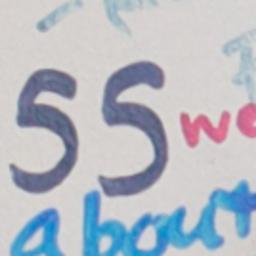 55 we
about